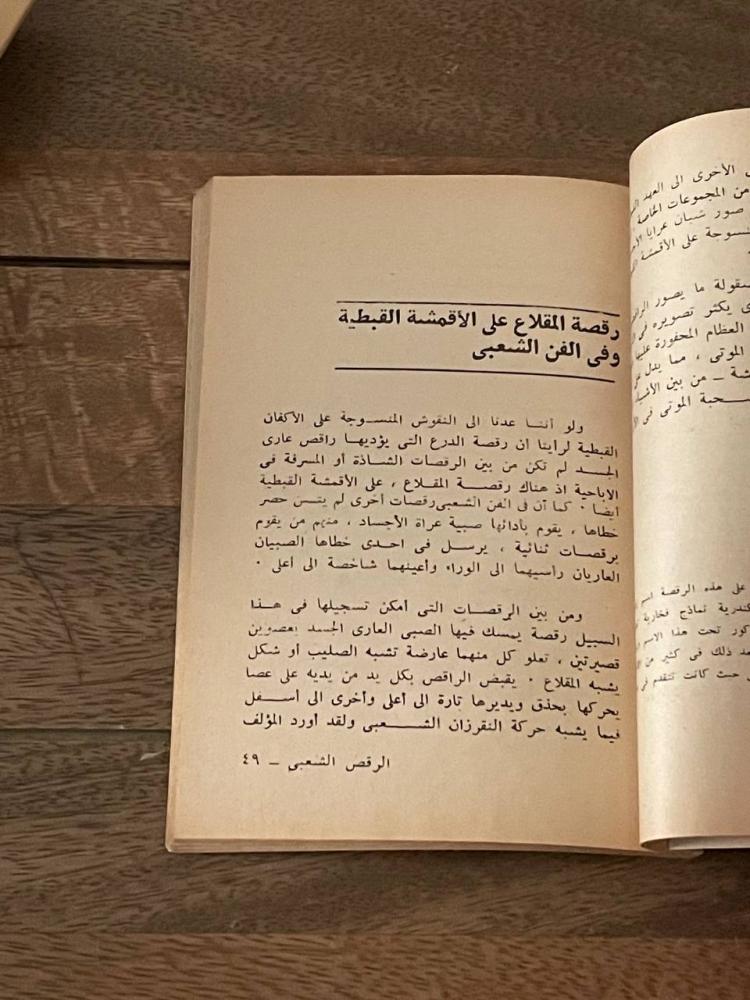 رقصة المقلاع على الأقمشة القبطية
وفى الفن الشعبى
ولو أننا عدنا الى النقوش المنسوجة على الأكفان
القبطية لرأينا ان رقصة الدرع التى يؤديها راقص عارى
الجسد لم تكن من بين الرقصات الشاذة أو المسرفة فى
الاباحية اذ هناك رقصة المقلاع ، على الأقمشة القبطية
ايضا ٠ كما آن فى الفن الشعبى رقصات أخرى لم يتسن حصر
خطاها ، يقوم بأدائها صبية عراة الأجساد ، منهم من يقوم
برقصات ثنائية ، يرسل فى احدى خطاها الصبيان
العاريان رأسيهما الى الوراء وأعينهما شاخصة الى أعلى ٠
ومن بين الرقصات التى أمكن تسجيلها فى هذا
السبيل رقصة يمسك فيها الصبى العارى الجسد بعصوين
قصيرتين ، تعلو كل منهما عارضة تشبه الصليب أو شكل
يشبه المقلاع ٠ يقبض الراقص بكل يد من يديه على عصا
يحركها بحذق ويديرها تارة الى أعلى وأخرى الى أسفل
فيما يشبه حركة النقرزان الشعبى ولقد أورد المؤلف
الرقص الشعبى ــ ٤٩
الأخرى الى العهد
من المجموعات الخاصة
صور شبان عرايا
على الأقمشة
ما يصور
يكثر تصويره فى
العظام المحفورة عليها
الموتى ، مما يدل
ــ من بين
الموتى فى
على هذه الرقصة اسم
نماذج فخارية
تحت هذا الاسم
ذلك فى كثير من
حيث كانت تتقدم فى